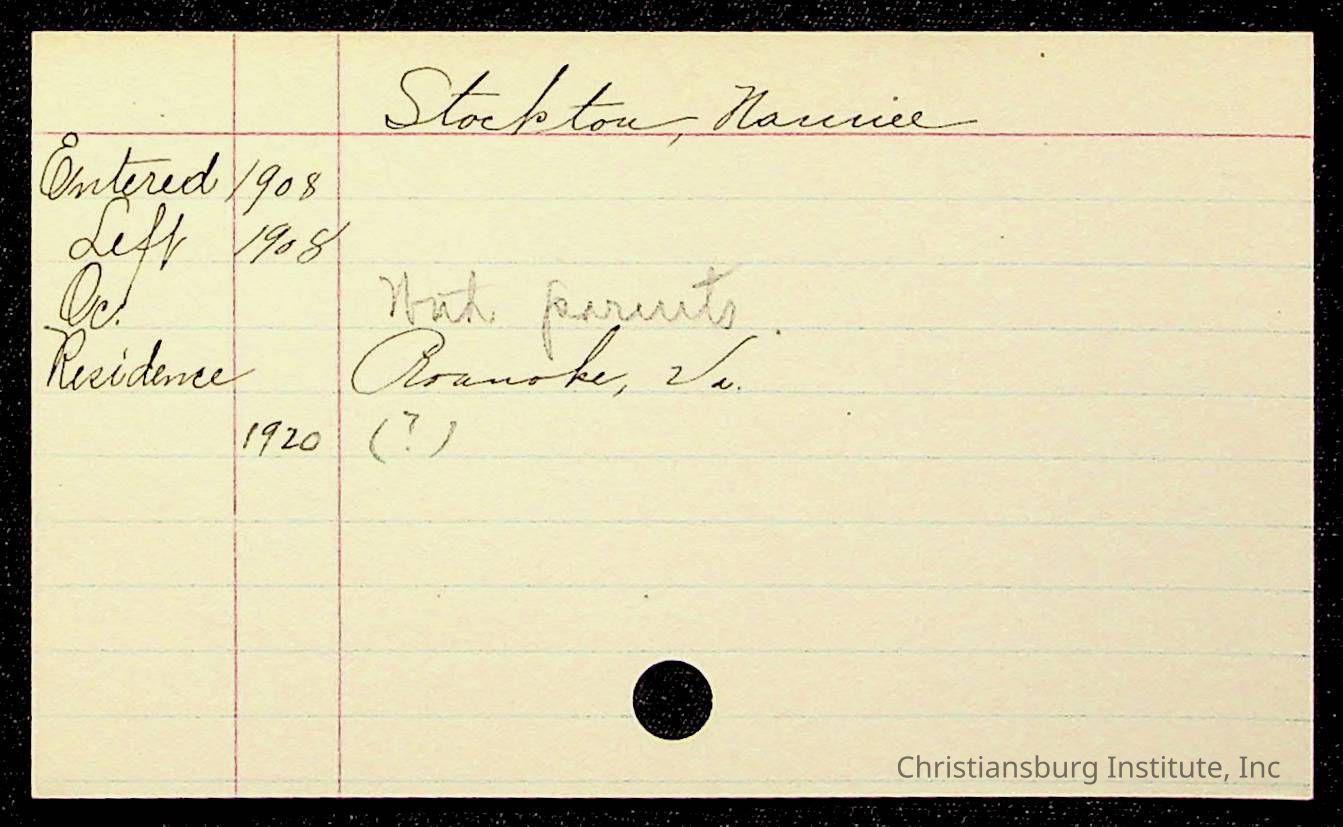 Stockton, Nanniee
Entered 1908
Left 1908
Oc. With parents.
Residence Roanoke, Va.
1920 (?)
Christiansburg Institute, Inc